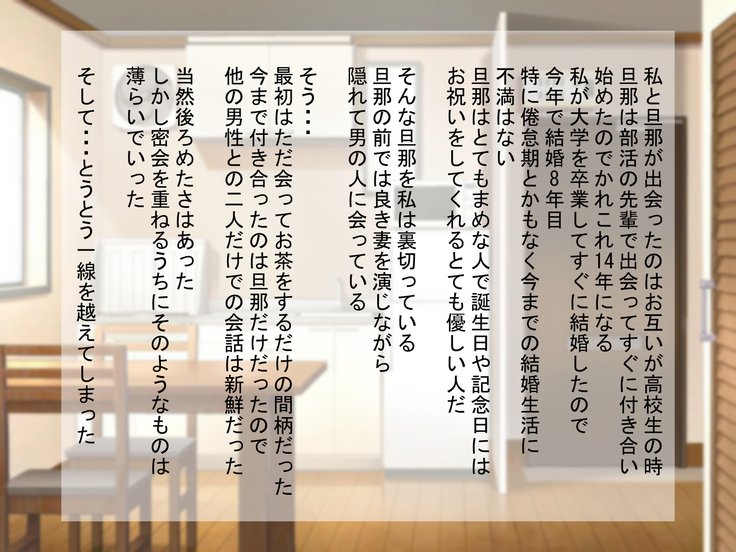 私と旦那が出会ったのはお互いが高校生の時
旦那は部活の先輩で出会ってすぐに付き合い
始めたのでかれこれ14年になる
私が大学を卒業してすぐに結婚したので
今年で結婚8年目
特に倦怠期とかもなく今までの結婚生活に
不満はない
旦那はとてもまめな人で誕生日や記念日には
お祝いをしてくれるとても優しい人だ
そんな旦那を私は裏切っている
旦那の前では良き妻を演じながら
隠れて男の人に会っている
そう・・・
最初はただ会ってお茶をするだけの間柄だった
今まで付き合ったのは旦那だけだったので
他の男性との二人だけでの会話は新鮮だった
当然後ろめたさはあった
しかし密会を重ねるうちにそのようなものは
薄らいでいった
そして・・・とうとう一線を越えてしまった